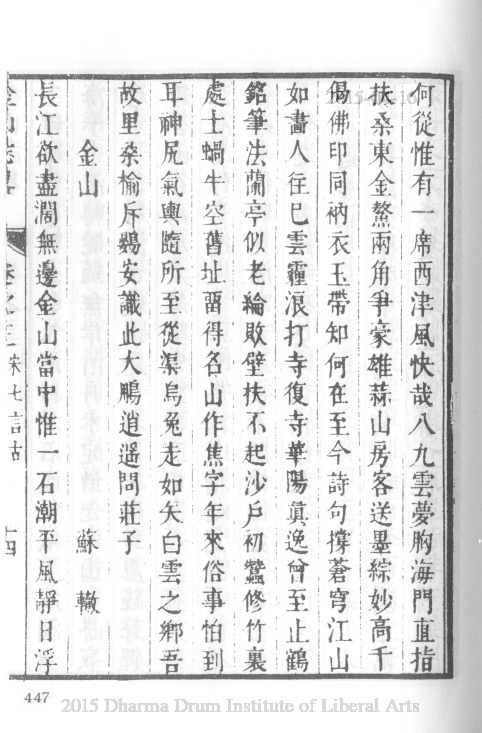 何從惟有一席西津風快哉八九雲夢胸海門直指
扶桑東金鰲兩角爭豪雄蒜山房客送墨綜妙高千
偈佛印同衲衣玉帶知何在至今詩句撐蒼穹江山
如畫人往已雲霾浪打寺復寺華陽眞逸曾至止鶴
銘筆法蘭亭似老綸敗壁扶不起沙戶初蠶修竹裏
處士蝸牛空舊址畱得名山作焦字年來俗事怕到
耳神尻氣輿隨所至從渠烏兔走如矢白雲之鄉吾
故里桑榆斥鷃安識此大鵬逍遥問莊子
金山 蘇轍
長江欲盡濶無邊金山當中惟一石潮平風靜日浮
金山志畧 卷之三 宋七言古 十四
447
2015 Dharma Drum Institute of Liberal Arts